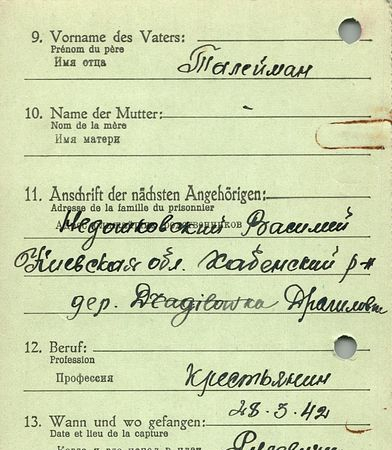 9. Vorname des Vaters:
Prénom du père
Имя отца
Талейман
10. Name der Mutter: -
Nom de la mère
Имя матери
11. Anschrift der nächsten Angehörigen:
Adresse de la famille du prisonnier
Недошковский Василий
Киевская обл. Хабенский р-н
дер.
12. Beruf:
Profession
Профессия
крестьянин
28.3.42
13. Wann und wo gefangen:
Date et lieu de la capture